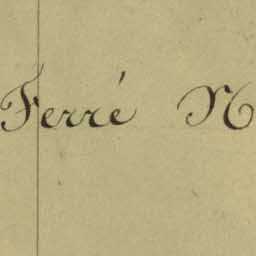 Ferré N